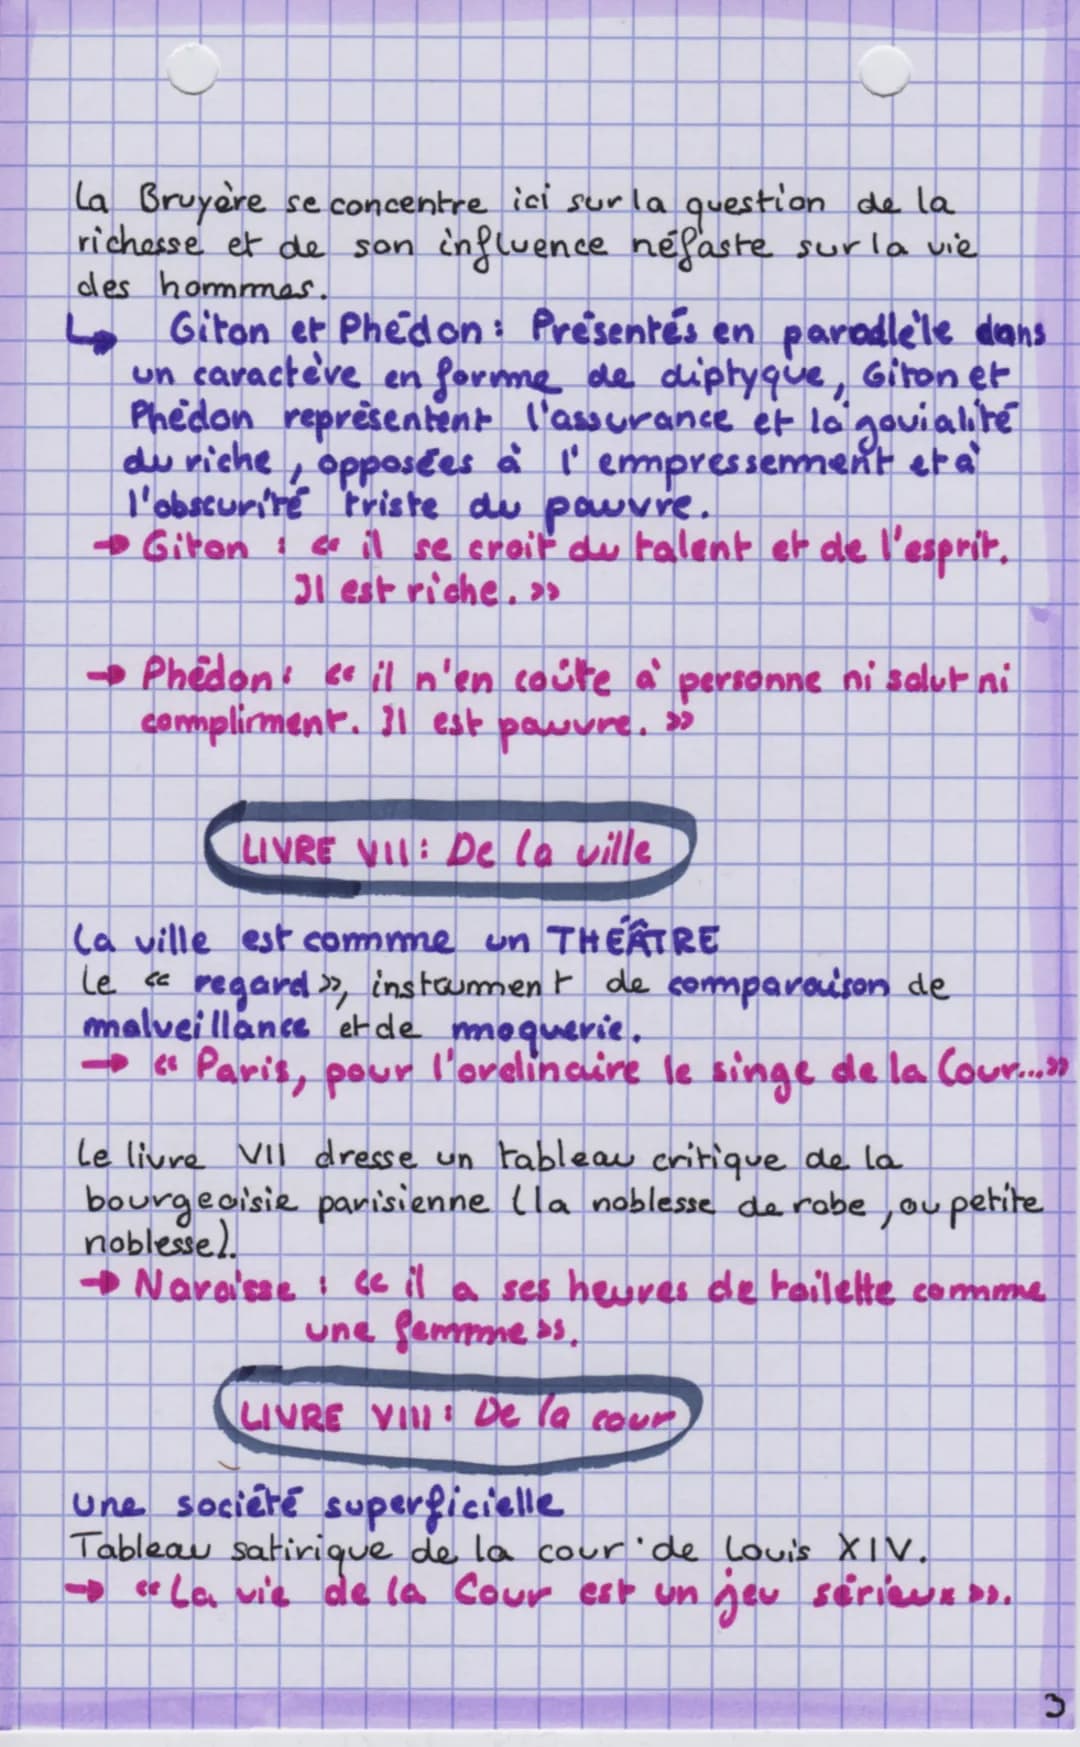 La Bruyère se concentre ici sur la question de la
richesse et de son influence néfaste sur la vie
des hommes.
↳ Giton et Phédon : Présentés en parallèle dans
un caractère en forme de diptyque, Giton et
Phédon représentent l'assurance et la jovialité
du riche, opposées à l'empressement et à
l'obscurité triste du pauvre.
→ Giton : « il se croit du talent et de l'esprit.
Il est riche. »
→ Phédon : « il n'en coûte à personne ni salut ni
compliment. Il est pauvre. »
LIVRE VII : De la ville
La ville est comme un THÉÂTRE
Le « regard », instrument de comparaison de
malveillance et de moquerie.
→ « Paris, pour l'ordinaire le singe de la Cour... »
Le livre VII dresse un tableau critique de la
bourgeoisie parisienne (la noblesse de robe, ou petite
noblesse).
→ Narcisse : « il a ses heures de toilette comme
une femme ».
LIVRE VIII : De la cour
une société superficielle
Tableau satirique de la cour de Louis XIV.
→ « La vie de la Cour est un jeu sérieux ».
3